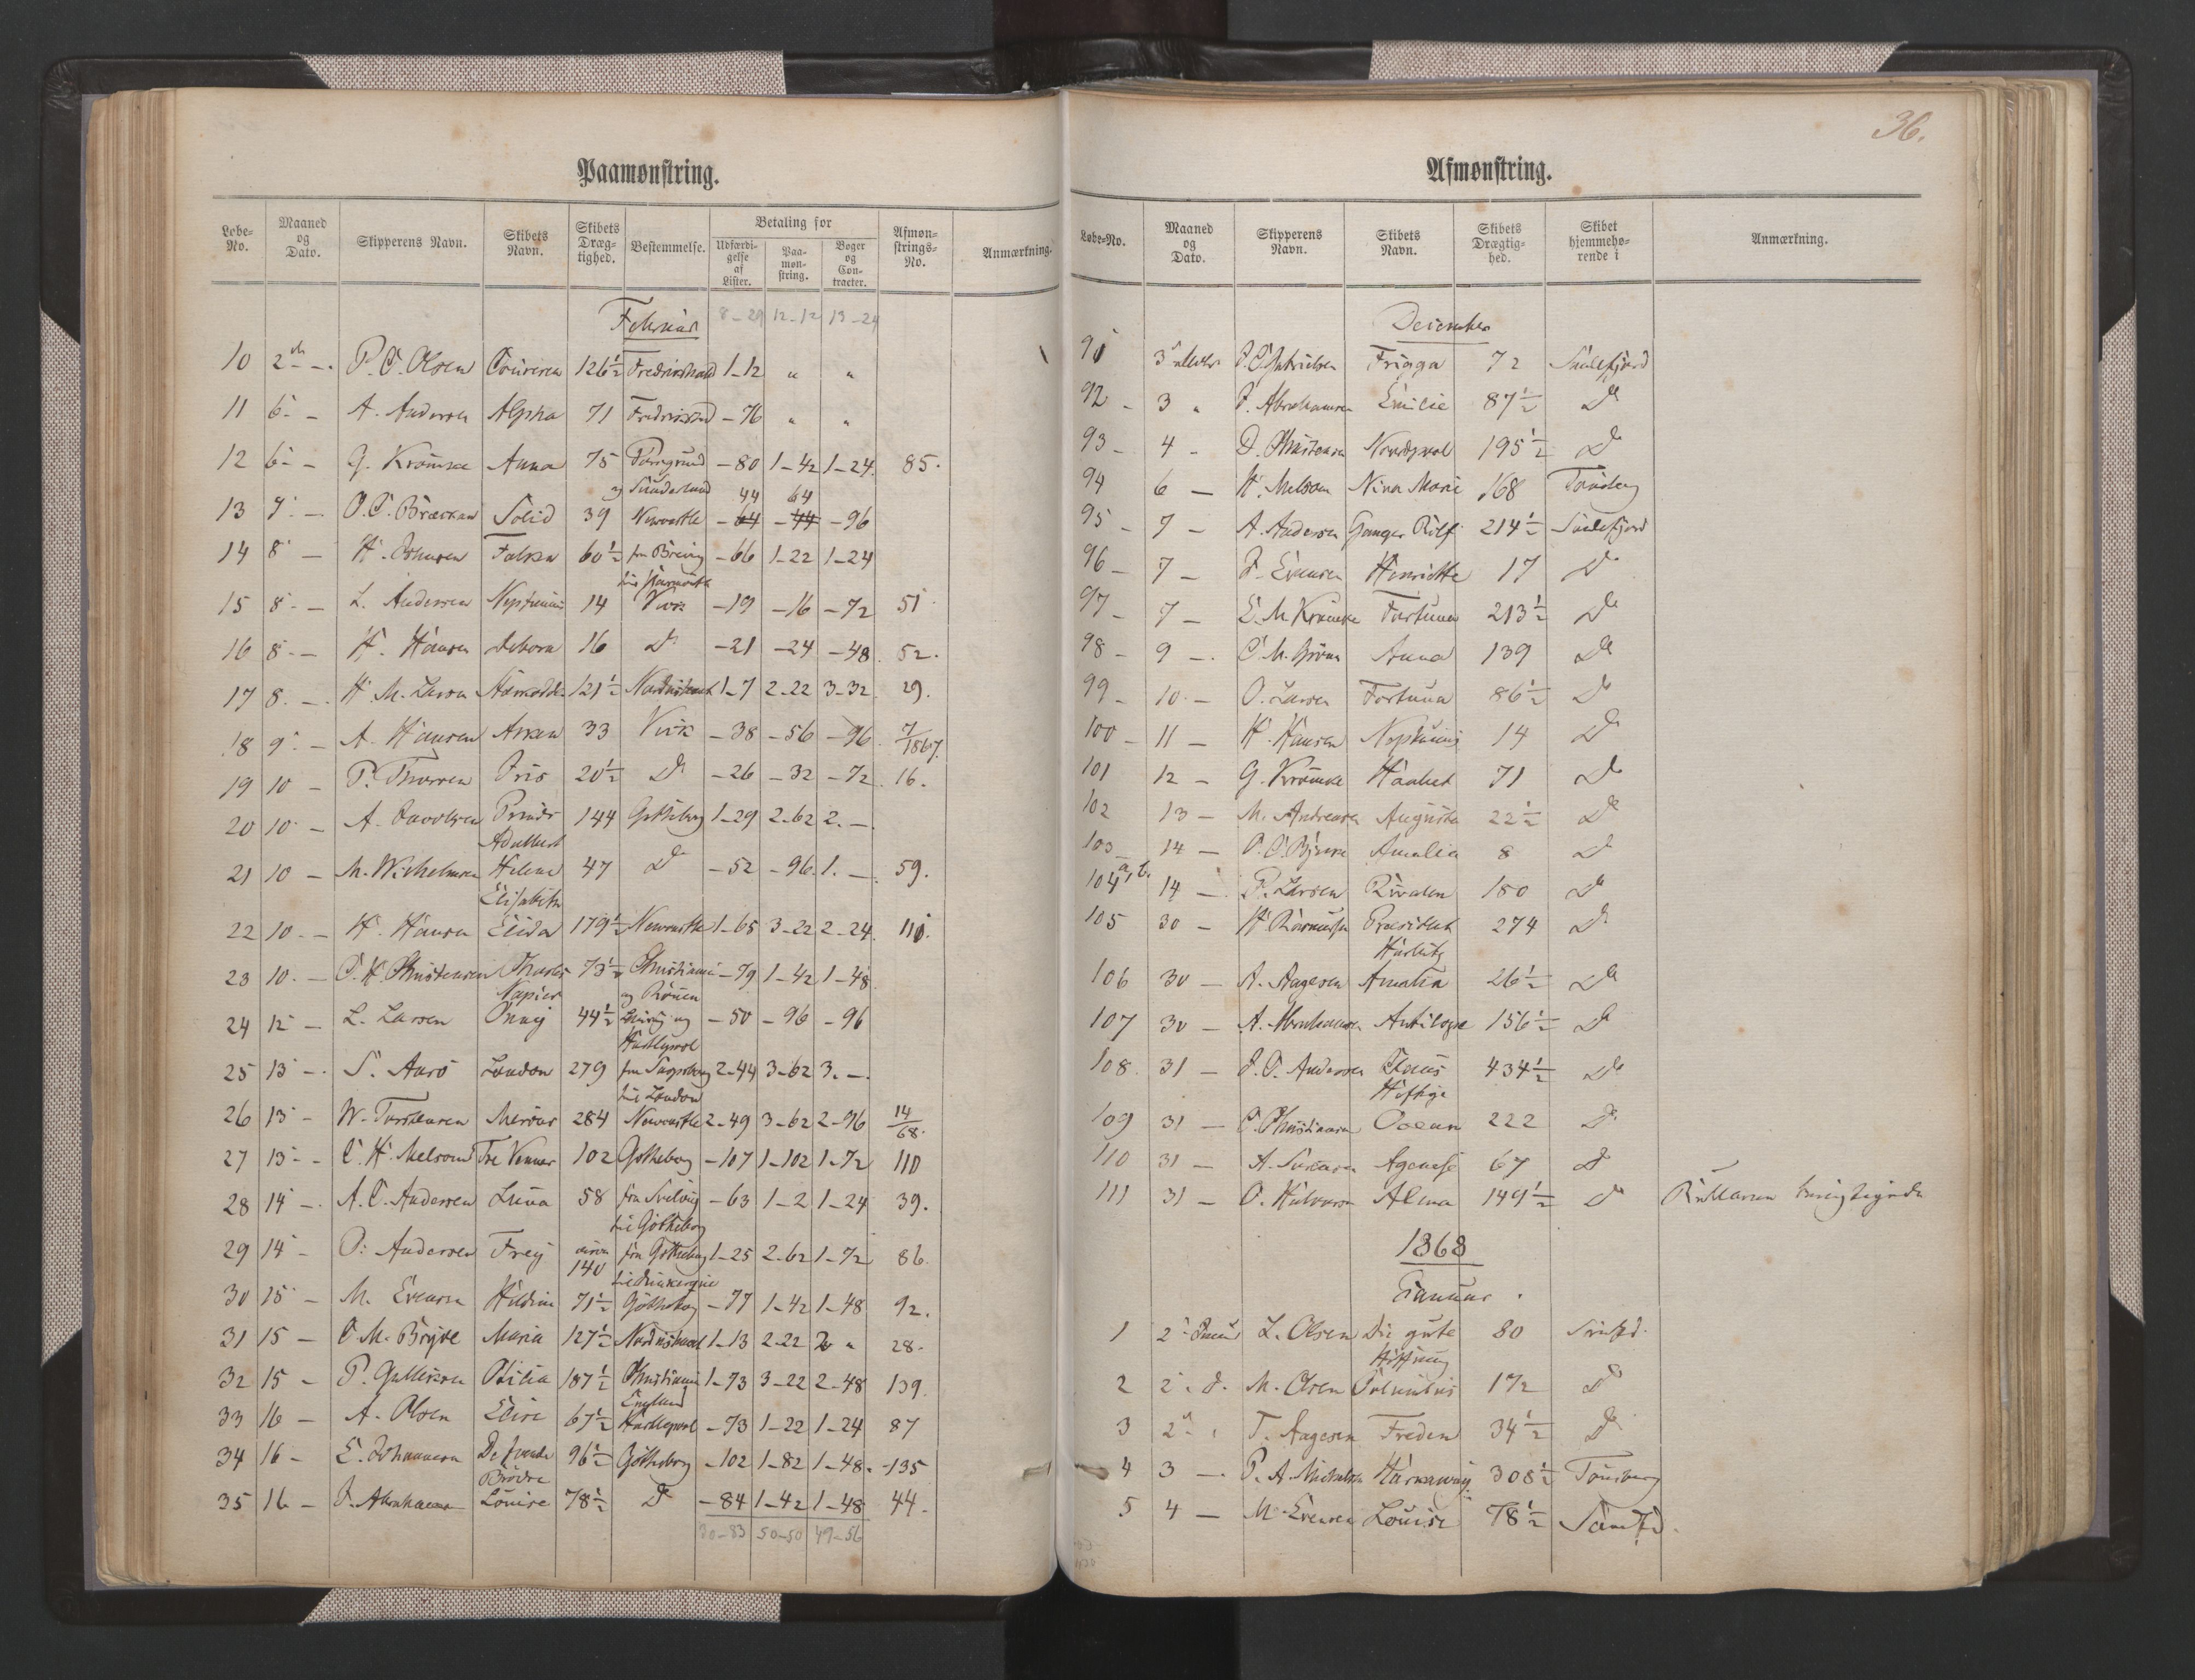 Paamønstring.
Løbe-No. Maaned og Dato. Skipperens Navn. Skibets Navn. Skibets Dræg-tighed. Bestemmelse. Betaling for Udfærdi-gelse af Lister. Paa-møn-string. Bøger og Con-tracter. Afmøn-strings-No. Anmærkning.
Februar 8-29 12-12 13-24
10 2 P. C. Olsen 126½ Fredrikshald 1-12 " "
11 6 - A. Andersen Alpha 71 Fredrikstad -76 " "
12 6 - G. Krømke Anna 75 Porsgrund -80 1-42 1-24. 85.
og Sunderland 44 64
13 7 - O. C. Solid 39 Newcastle -64 -44 -96
14 8 - H. Falken 60½ fra -66 1-22 1-24
15 8 - L. Andersen Neptunus 14 Viik -19 -16 -72 51
16 8 - H. Hansen Debora 16 Do -21 -24 -48. 52.
17 8. - H. M. Larsen 121½ 1-7 2-22 3-32. 29.
18 9 - A. Hansen Askan 33 Viik -38 -56 -96. 7/1867.
19 10 - P. Thorsen Iris 20½ Do -26 -32 -72. 16.
20 10 - A. Jacobsen Prinds 144 Gøtheborg 1-29 2-62 2.-.
Adalbert
21 10 - M. Wilhelmsen Helene 47 Do -52 -96. 1.-. 59.
Elisabeth
22 10. - H. Hansen Elida 179½ Newcastle 1-65 3-22 2-24. 110.
23 10. - C. H. Christensen Charles 73½ Christiania -79 1-42 1-48.
Napier og Rouen
24 12 - L. Larsen 44½ og -50 -96 -96
Hartlepool
25 13 -. S. Aarø London 279 fra Sarpsborg 2-44 3-62 3.-.
til London
26 13 - W. Torstensen 284 Newcastle 2-49 3-62 2-96 14/68.
27 13 - C. H. Melsom Tre Venner 102 Gøtheborg -107 1-102 1-72 110
28 14 -. A. C. Andersen Luna 58 fra Svelvig -63 1-2 1-24 39.
til Gøtheborg
29 14 - Andersen Frey circa 140 fra Gøtheborg 1-25 2-62 1-72 86.
30 15 - M. Evensen 71½ Gøtheborg -77 1-42 1-48 92.
31 15 - C. M. Bryde Maria 127½ 1-13 2-22 2 " 28.
32 15 - P. Gulliksen Otilia 187½ Christiania 1-73 3-22 2-48 139.
England
33 16 - A. Olsen Elise 67½ Hartlepool -73 1-22 1-24 87
34 16 - E. Johannesen De trende 96½ Gøtheborg -102 1-82 1-48. -135
Brødre
35 16 - J. Abrahamsen Louise 78½ Do -84 1-42 1-48 44.
30-83 50-50 49-56
36.
Afmønstring.
Løbe-No. Maaned og Dato. Skipperens Navn. Skibets Navn. Skibets Drægtig-hed. Skibet hjemmehø-rende i Anmærkning.
December
91 3 J. C. Gabrielsen Frigga 72 Sandefjord
92 - 3 " J. Abrahamsen Emilie 87½ Do
93 - 4 - D. Christensen Nordpol 195½ Do
94 6 - H. Melsom Nina Marie 168 Tønsberg
95 - 7 - A. Andersen Ganger Rolf 214½ Sandefjord
96 - 7 - J. Evensen Henriette 17 Do
97 - 7 - E. M. Krømke Fortuna 213½ Do
98 - 9 -. C. M. Anna 139 Do
99 - 10 - O. Larsen Fortuna 86½ Do
100 - 11 - H. Hansen Neptunus 14 Do
101 12 - G. Krømke Haabet 71 Do
102 13 - M. Andreasen Augusta 22½ Do
103 14 - O. C. Amalia 8 Do
104 a, b. 14 - P. Larsen Rivalen 180 Do
105 30 - H. Rasmussen Præsident 274 Do
Harbitz
106 30 - A. Aagesen Amalia 26½ Do
107 30 - A. Abrahamsen Antilope 156½ Do
108. 31 - J. C. Andersen Claus 434½ Do
Heftye
109 31 - C. Christiansen Ocean 222 Do
110 31 - A. Sørensen 67 Do
111 31 - O. Halvorsen Alma 149½ Do Rullaren
1868
Januar.
1 2 L. Olsen Die gute 80 Sandfd.
Hoffnung
2 2 d. M. Olsen Columbus 172 Do
3 2 " T. Aagesen Freden 34½ Do
4 3 - P. A. Michelsen Harkaway 308½ Tønsberg
5 4 - M. Evensen Louise 78½ Sandfd.